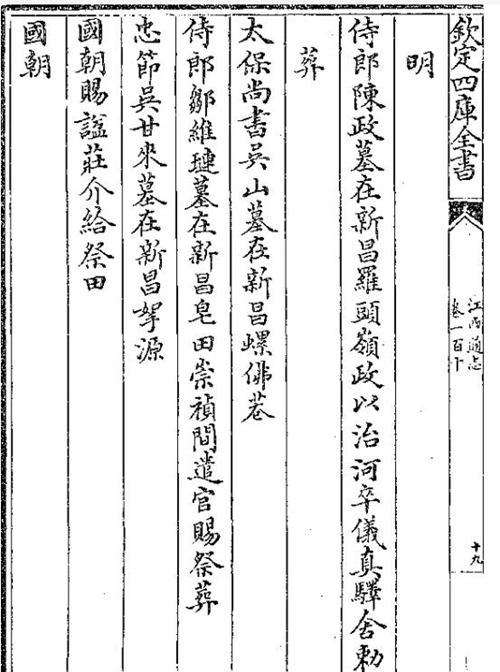 欽定四庫全書
江西通志
卷一百十
十九
明
侍郎陳政墓在新昌羅頭嶺政以治河卒儀真驛舍勅
葬
太保尚書吳山墓在新昌螺佛菴
侍郎鄒維璉墓在新昌皂田崇禎間遣官賜祭葬
忠節吳甘來墓在新昌挐源
國朝賜諡莊介給祭田
國朝